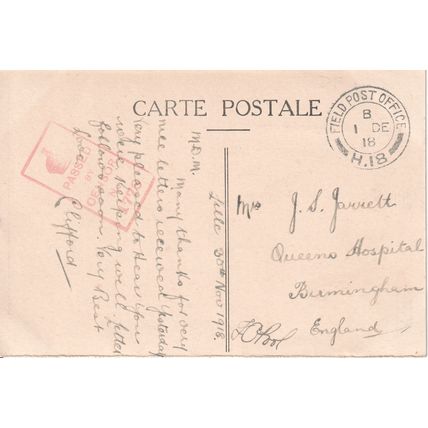 CARTE POSTALE
FIELD POST OFFICE
B
1 DE
18
H.18
PASSED
BY
CENSOR
Lille 30th Nov 1918.
M.D.M.
Many thanks for very
nice letters received yesterday
Very pleased to hear you
were keeping well. letter
follows soon. Very Best
Love Clifford
Mrs J. S. Jarrett
Queens Hospital
Birmingham
England